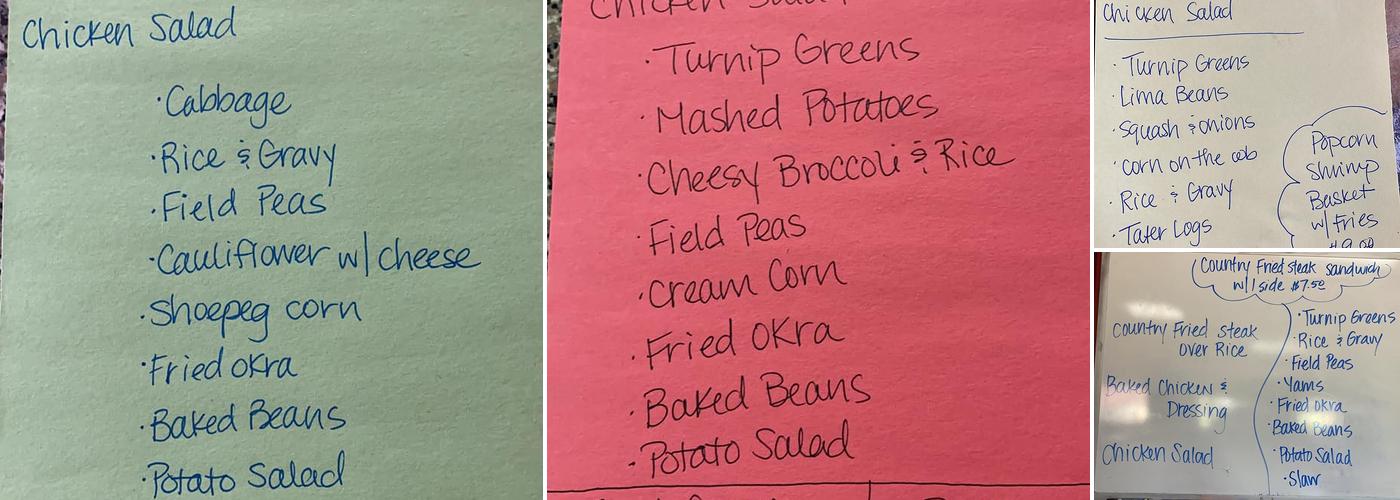 Chicken Salad
· Cabbage
· Rice & Gravy
· Field Peas
· Cauliflower w/ cheese
· Shoepeg corn
· Fried okra
· Baked Beans
· Potato Salad
Chicken Salad
· Turnip Greens
· Mashed Potatoes
· Cheesy Broccoli & Rice
· Field Peas
· Cream Corn
· Fried Okra
· Baked Beans
· Potato Salad
Chicken Salad
· Turnip Greens
· Lima Beans
· Squash & onions
· corn on the cob
· Rice & Gravy
· Tater Logs
Popcorn
Shrimp
Basket
w/ fries
Country Fried steak sandwich
w/ 1 side $7.50
Country Fried steak
over Rice
Baked Chicken &
Dressing
Chicken Salad
· Turnip Greens
· Rice & Gravy
· Field Peas
· Yams
· Fried okra
· Baked Beans
· Potato Salad
· Slaw